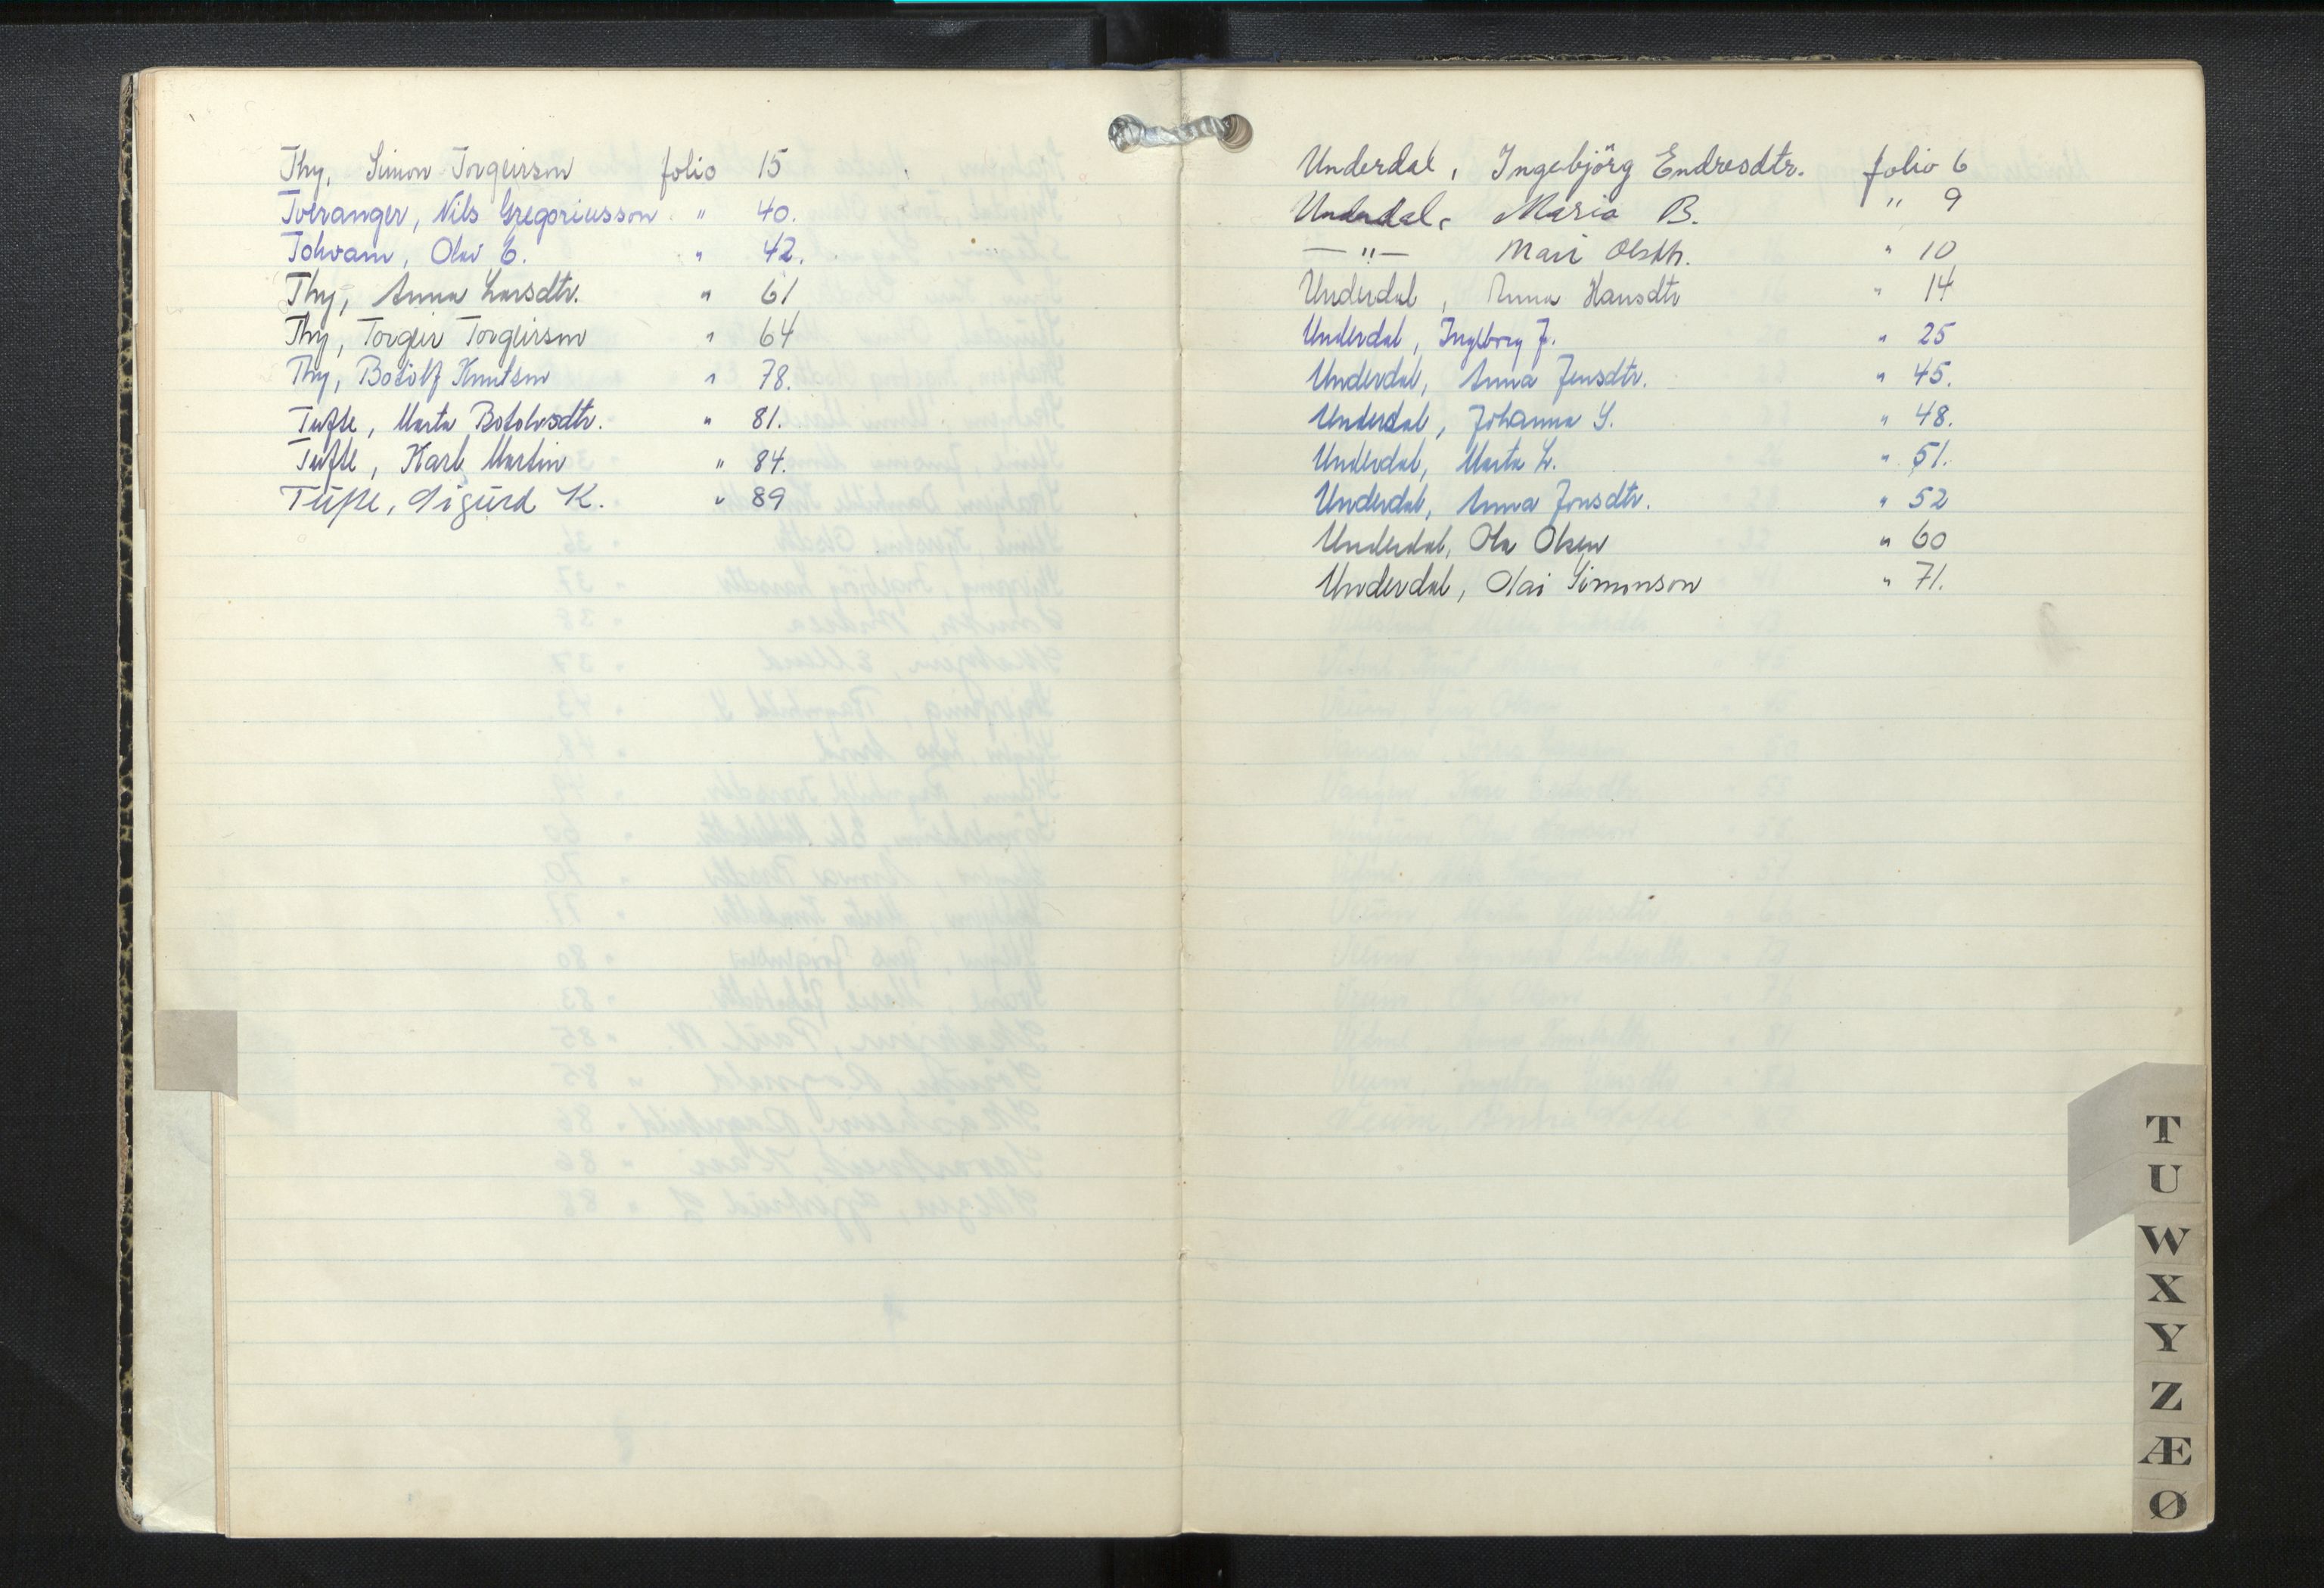 Thy, Simon Torgeirson folio 15
Tveranger, Nils Gregoriusson " 40.
Tokvam, Olav E. " 42.
Thy, Anna Larsdtr. " 61
Thy, Torgeir Torgeirson " 64
Thy, Botolf Knutson " 78.
Tufte, Marta Botolvsdtr. " 81.
Tufte, Karl Martin " 84.
Tufte, Sigurd K. " 89
Underdal, Ingebjörg Endresdtr. folio 6
Underdal, Maria B. " 9
— " — Mari Olsdtr. " 10
Underdal, Anna Hansdtr " 14
Underdal, Ingeborg J. " 25
Underdal, Anna Jensdtr. " 45.
Underdal, Johanna S. " 48.
Underdal, Marta L. " 51.
Underdal, Anna Jonsdtr. " 52
Underdal, Ola Olsen " 60
Underdal, Olai Simonson " 71.
T
U
W
X
Y
Z
Æ
Ø